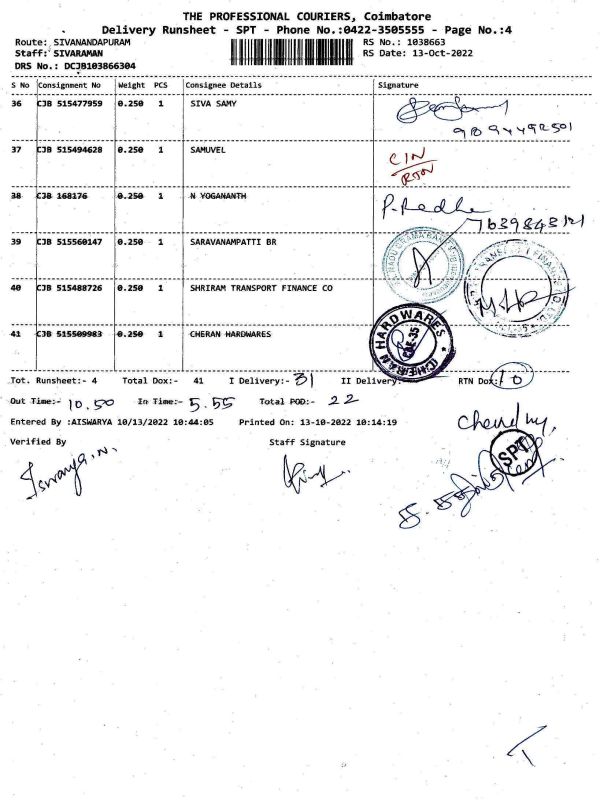 THE PROFESSIONAL COURIERS, Coimbatore
Delivery Runsheet - SPT - Phone No.:0422-3505555 - Page No.:4
Route: SIVANANDAPURAM RS No.: 1038663
Staff: SIVARAMAN RS Date: 13-Oct-2022
DRS No.: DCJB103866304
S No Consignment No Weight PCS Consignee Details Signature
36 CJB 515477959 0.250 1 SIVA SAMY
37 CJB 515494628 0.250 1 SAMUVEL CIN
RTN
38 CJB 168176 0.250 1 N YOGANANTH P. Radha
7639843121
39 CJB 515560147 0.250 1 SARAVANAMPATTI BR
40 CJB 515488726 0.250 1 SHRIRAM TRANSPORT FINANCE CO
41 CJB 515509983 0.250 1 CHERAN HARDWARES
CHERAN HARDWARES
CBE-35
Tot. Runsheet:- 4 Total Dox:- 41 I Delivery:- 31 II Delivery:- RTN Dox:- 10
Out Time:- 10.50 In Time:- 5.55 Total POD:- 22
Entered By :AISWARYA 10/13/2022 10:44:05 Printed On: 13-10-2022 10:14:19
Verified By Staff Signature
SPT